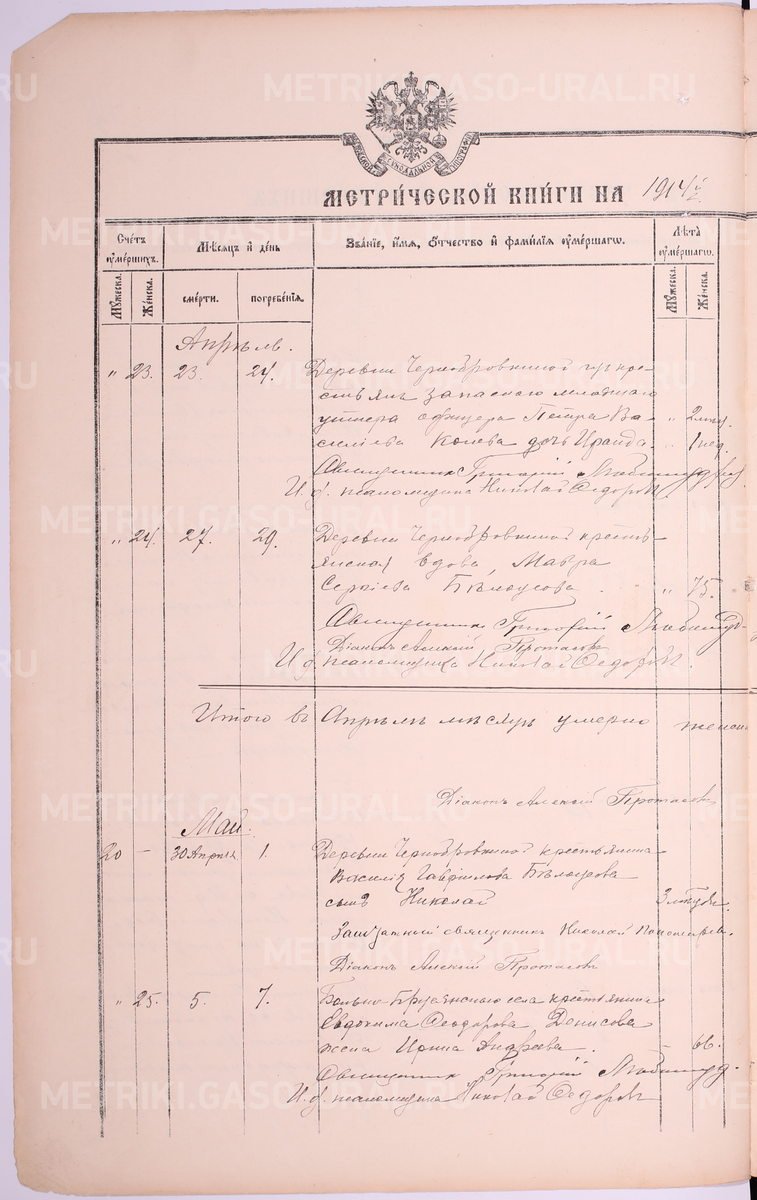 МЕТРИЧЕСКОЙ КНИГИ НА 1914
Счетъ умершихъ.
Мужеска.
Женска.
Мѣсяцъ и день
смерти.
погребенія.
Званіе, имя, отчество и фамилія умершаго.
Лѣта умершаго.
Мужеска.
Женска.
Апрѣль.
" 23. 23. 24. Деревни Чернобровкиной кре-
стьян запаснаго младшаго
унтера офицера Петра Ва-
сильева Конева дочь Ираида
Священникъ Григорій
И. д. псаломщика Николай Ѳедоровъ
" 24. 27. 29. Деревни Чернобровкиной кресть-
янская вдова, Мавра
Сергіева Бѣлоусова " 75.
Священникъ Григорій
Діаконъ Алексій Протасовъ
И. д. псаломщика Николай Ѳедоровъ.
Итого въ Апрѣлѣ мѣсяцѣ умерло женск
Діаконъ Алексій Протасовъ
Май.
20 – 30 Апрѣля 1. Деревни Чернобровкиной крестьянина
Василія Гавріилова Бѣлоусова
сынъ Николай
Заштатный священникъ Николай Пономаревъ.
Діаконъ Алексій Протасовъ
" 25. 5. 7. Больше-Брусянскаго села крестьянина
Евдокима Ѳеодорова Денисова
жена Ирина Андреева. – 66.
Священникъ Григорій
И. д. псаломщика Николай Ѳедоровъ
METRIKI.GASO-URAL.RU